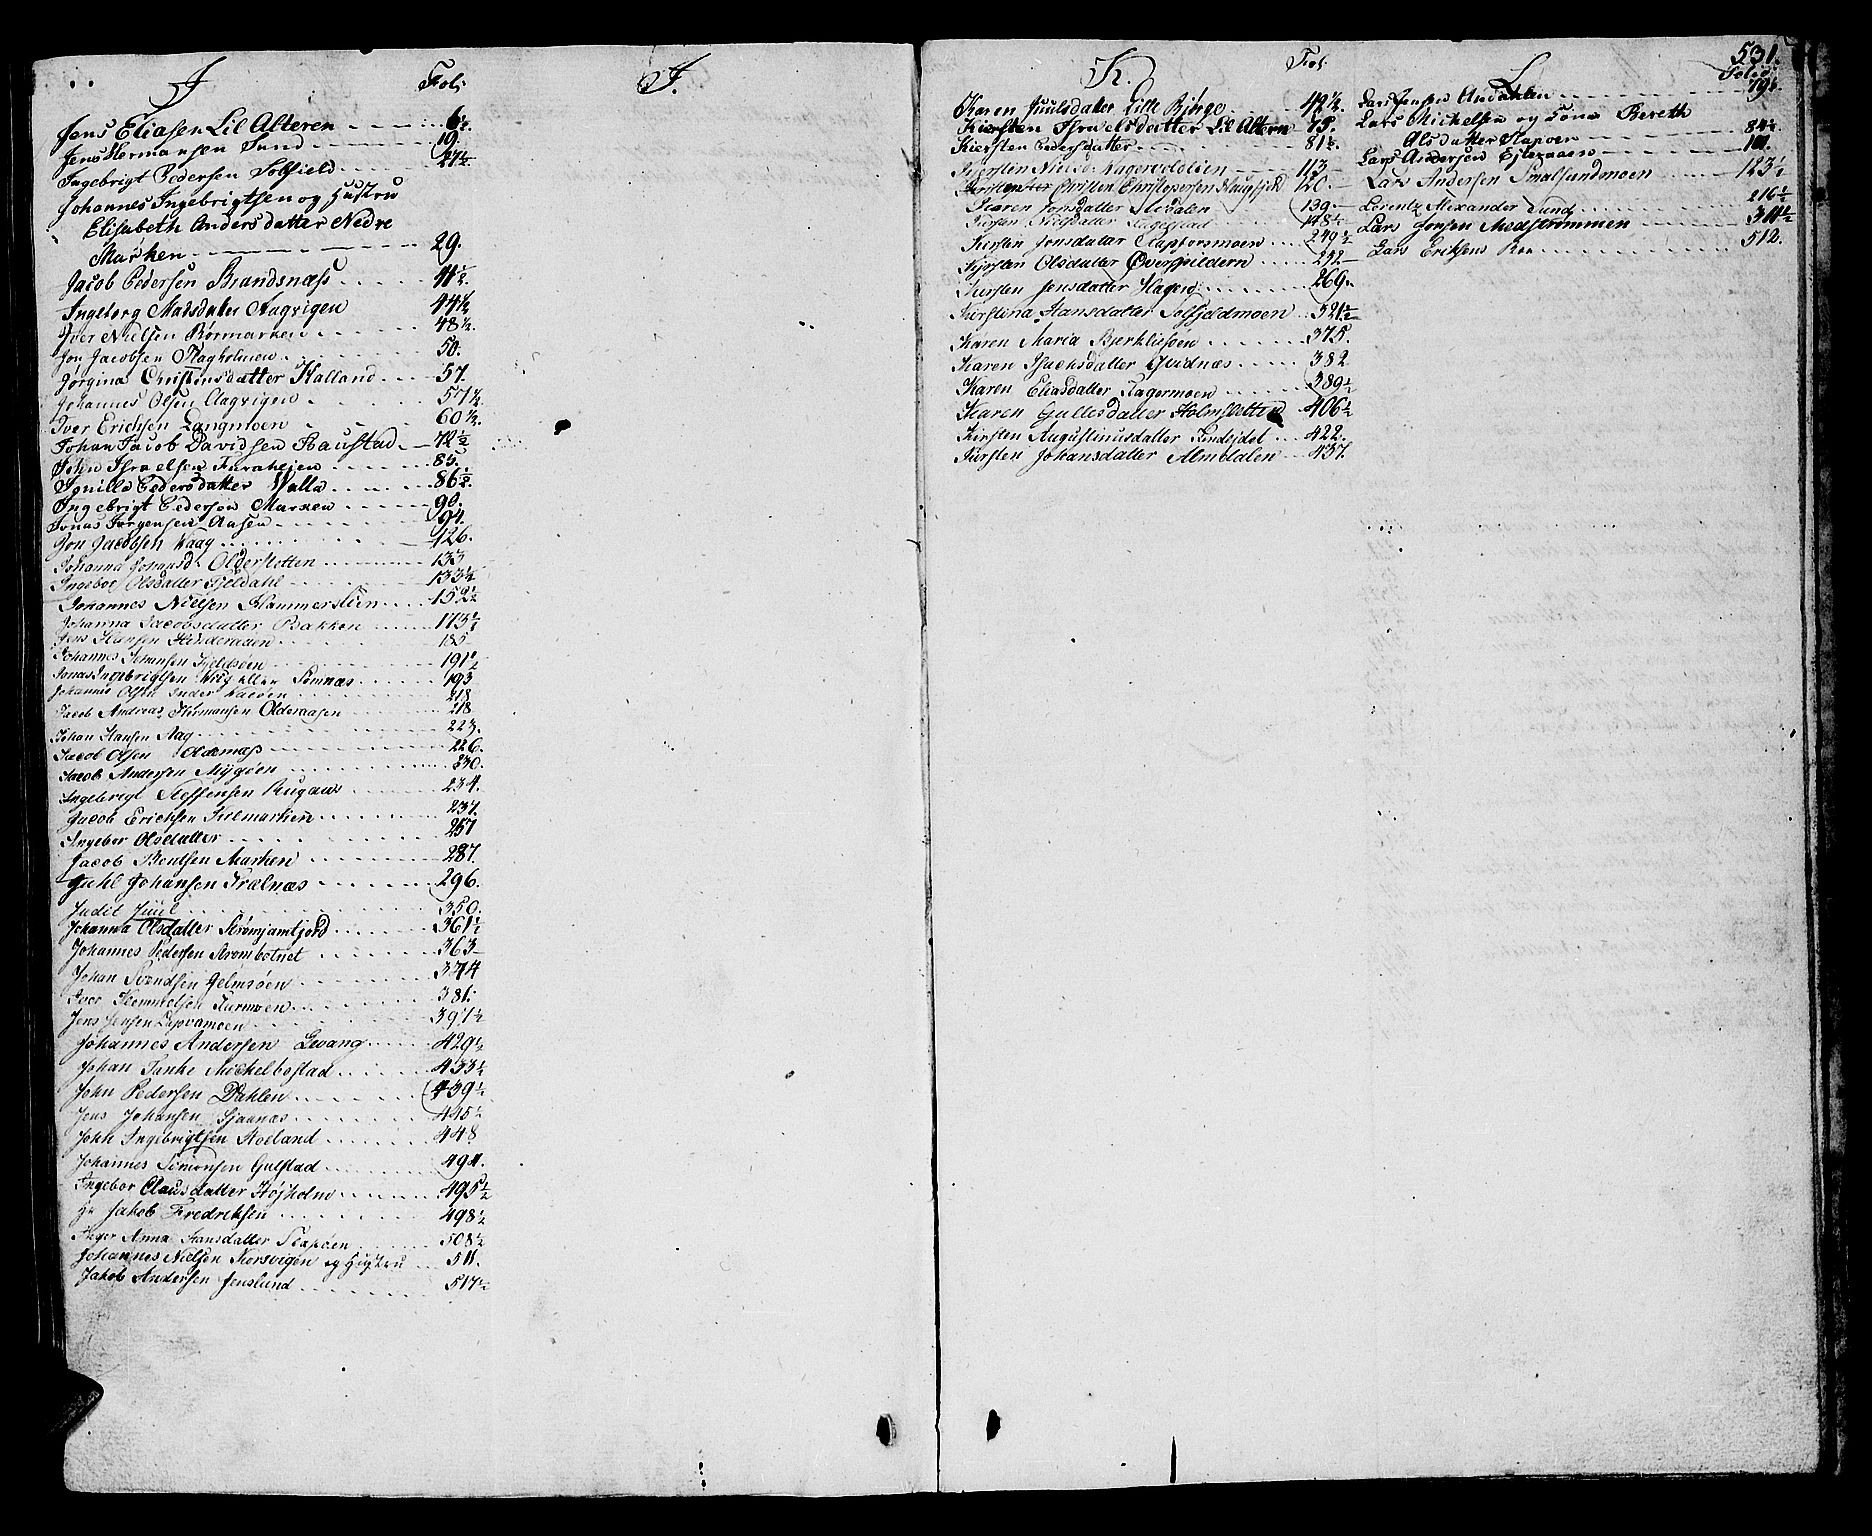 J
Fol:
Jens Eliasen Lil Alteren 6½.
Jens Hermansen Sund 19.
Ingebrigt Pedersen Solfield 27½
Johannes Ingebrigtsen og Hustru
Elisabeth Andersdatter Nedre
Marken 29.
Jacob Pedersen Brandsnæss 41½.
Ingeborg Madsdatter Aagvigen 44½
Iver Nielsen Børmarken 48½.
Jon Jacobsen Flagholmen 50.
Jørgina Christensdatter Halland 57.
Johannes Olsen Aagvigen 57½
Iver Erichsen Langmoen 60½.
Johan Jacob Davidsen Baustad 72½
John Israelsen Furuheien 85.
Pedersdatter Valla 86½.
Ingebrigt Pedersen Marken 90.
Jonas Jørgensen Aasen 94.
Jon Jacobsen Vaag 126.
Johanna Johansd: Oldersletten 133
Ingebor Olsdatter Fieldahl 133½
Johannes Nielsen Hammerslien 152½
Johanna Jacobsdatter Bakken 173½
Jens Hansen Hinderaaen 185
Johannes Johansen Hieldsøen 191½
Jonas Ingebrigtsen eller Sømnæs 193
Johannes Olsen Inder 218
Jacob Andreas Hermansen Olderaasen 218
Johan Hansen Aag 223.
Jacob Olsen Oldernæss 226.
Jacob Andersen Mÿgøen 230.
Ingebrigt Steffensen Rugaas 234.
Jacob Erichsen Kilmarken 237.
Ingebor Olsdatter 257
Jacob Bentsen Marken 287.
Juhl Johansen Trælnæs 296.
Judit Juul 350.
Johanna Olsdatter Strømjamtjord 361½
Johannes Pedersen Strømbotnet 363
Johan Svendsen Helmsøen 374
Iver Klemmetsen Furmoen 381.
Jens Jensen 397½
Johannes Andersen Levang 429½
Johan Tanke Mickelbostad 433½
John Pedersen Dahlen 439½
Jens Johansen Sjaanæs 445½
John Ingebrigtsen Holand 448
Johannes Simonsen Gulstad 494.
Ingebor Clausdatter Højholm 495½
Hr Jakob Fredriksen 498½
Anna Hansdatter 508½
Johannes Nielsen Korsvigen og Hustru 511.
Jakob Andersen Jenslund 517½
J.
K.
Fol:
Karen Juulsdatter Lille Bjerge 42½.
Kiersten Israelsdatter Lil Altern 75.
Kiersten Pedersdatter 81½.
Kiersten Nielsd: Hagervoldlien 113
Christen Christophersen Haugfjeld 120.
Karen Jonsdatter Stedalen 139.
Kirsten Nielsdatter 148½
Kirsten Jonsdatter Klapforsmoen 249½
Kjersten Olsdatter Øverqvildern 252
Kirsten Jensdatter Hagen 269.
Kirstina Hansdatter Solfjeldmoen 321½
Karen Maria Bierkliesøen 375.
Karen Isachsdatter Qvidnæs 382
Karen Eliasdatter Flagermoen 389½
Karen Gullesdatter Holmsletten 406½
Kirsten Augustinusdatter Finsejdet 422.
Kirsten Johansdatter Almdalen 457.
L
531.
Folio
Lars Jensen Andahlen 79½
Lars Michelsen og Kone Bereth
Olsdatter Slapøen 84½
Lars Andersen 101.
Lars Andersen Smalsundmoen 123½
Lorentz Alexander Sund 216½
Lars Jonsen Medstrømmen 311½
Lars Eriksens Roe 512.